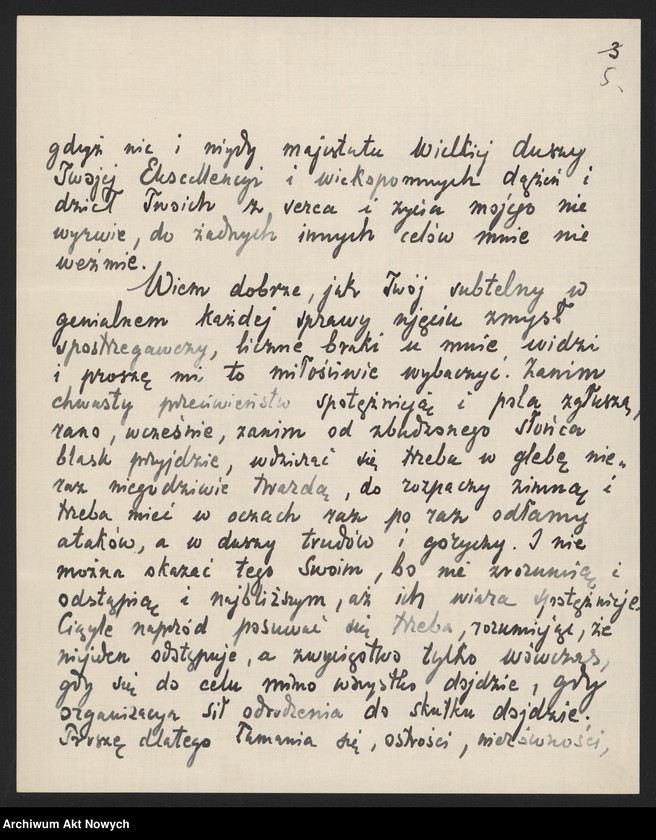 3
5.
gdyż nic i nigdy majestatu Wielkiej duszy
Twojej Ekscellencyi i wiekopomnych dążeń i
dzieł Twoich z serca i życia mojego nie
wyrwie, do żadnych innych celów mnie nie
weźmie.
Wiem dobrze, jak Twój subtelny w
genialnem każdej sprawy ujęciu zmysł
spostrzegawczy, liczne braki u mnie widzi
i proszę mi to miłościwie wybaczyć. Zanim
chwasty przeciwieństw spotężnieją i pola zgłuszą,
rano, wcześnie, zanim od zbudzonego słońca
blask przyjdzie, wdzierać się trzeba w glebę nie-
raz niegodziwie twardą, do rozpaczy zimną i
trzeba mieć w oczach raz po raz odłamy
ataków, a w duszy trudów i goryczy. I nie
można okazać tego Swoim, bo nie zrozumią i
odstąpią i najbliższym, aż ich wiara spotężnieje.
Ciągle naprzód posuwać się trzeba, rozumiejąc, że
niejeden odstępuje, a zwycięstwo tylko wówczas,
gdy się do celu mimo wszystko dojdzie, gdy
organizacya sił odrodzenia do skutku dojdzie.
Proszę dlatego łamania się, ostrości, nierówności,
Archiwum Akt Nowych